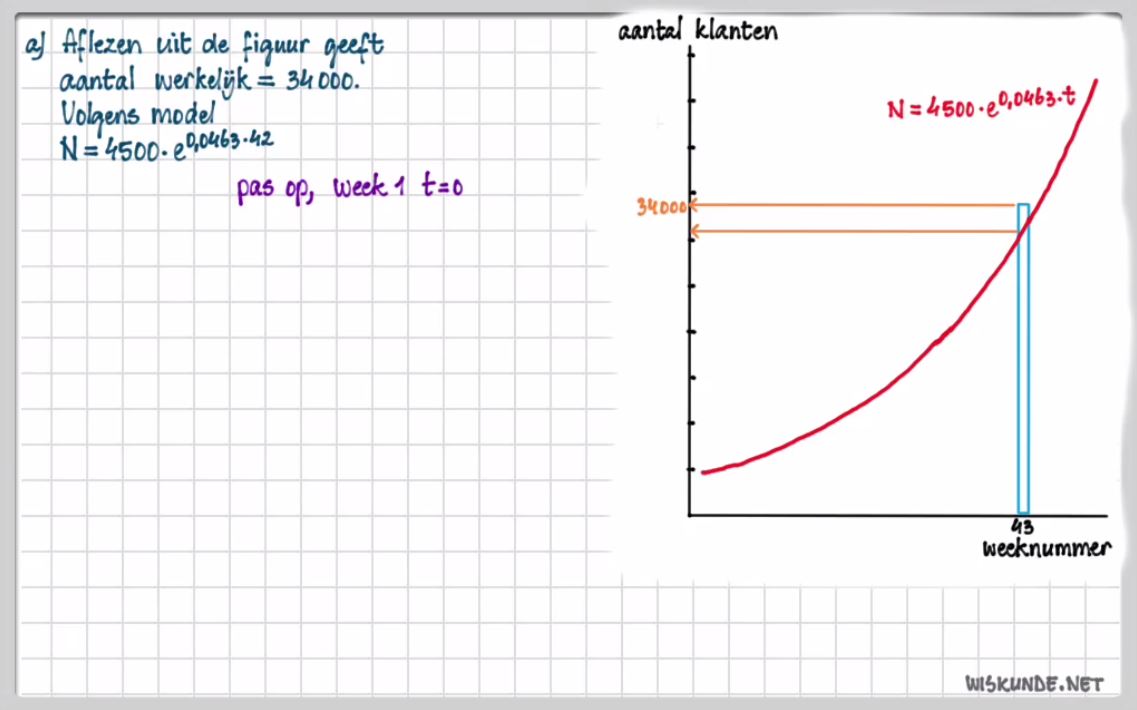 a) Aflezen uit de figuur geeft
aantal werkelijk = 34 000.
Volgens model
N = 4500 · e^0,0463·42
pas op, week 1 t=0
aantal klanten
N = 4500 · e^0,0463·t
34000
43
weeknummer
WISKUNDE.NET